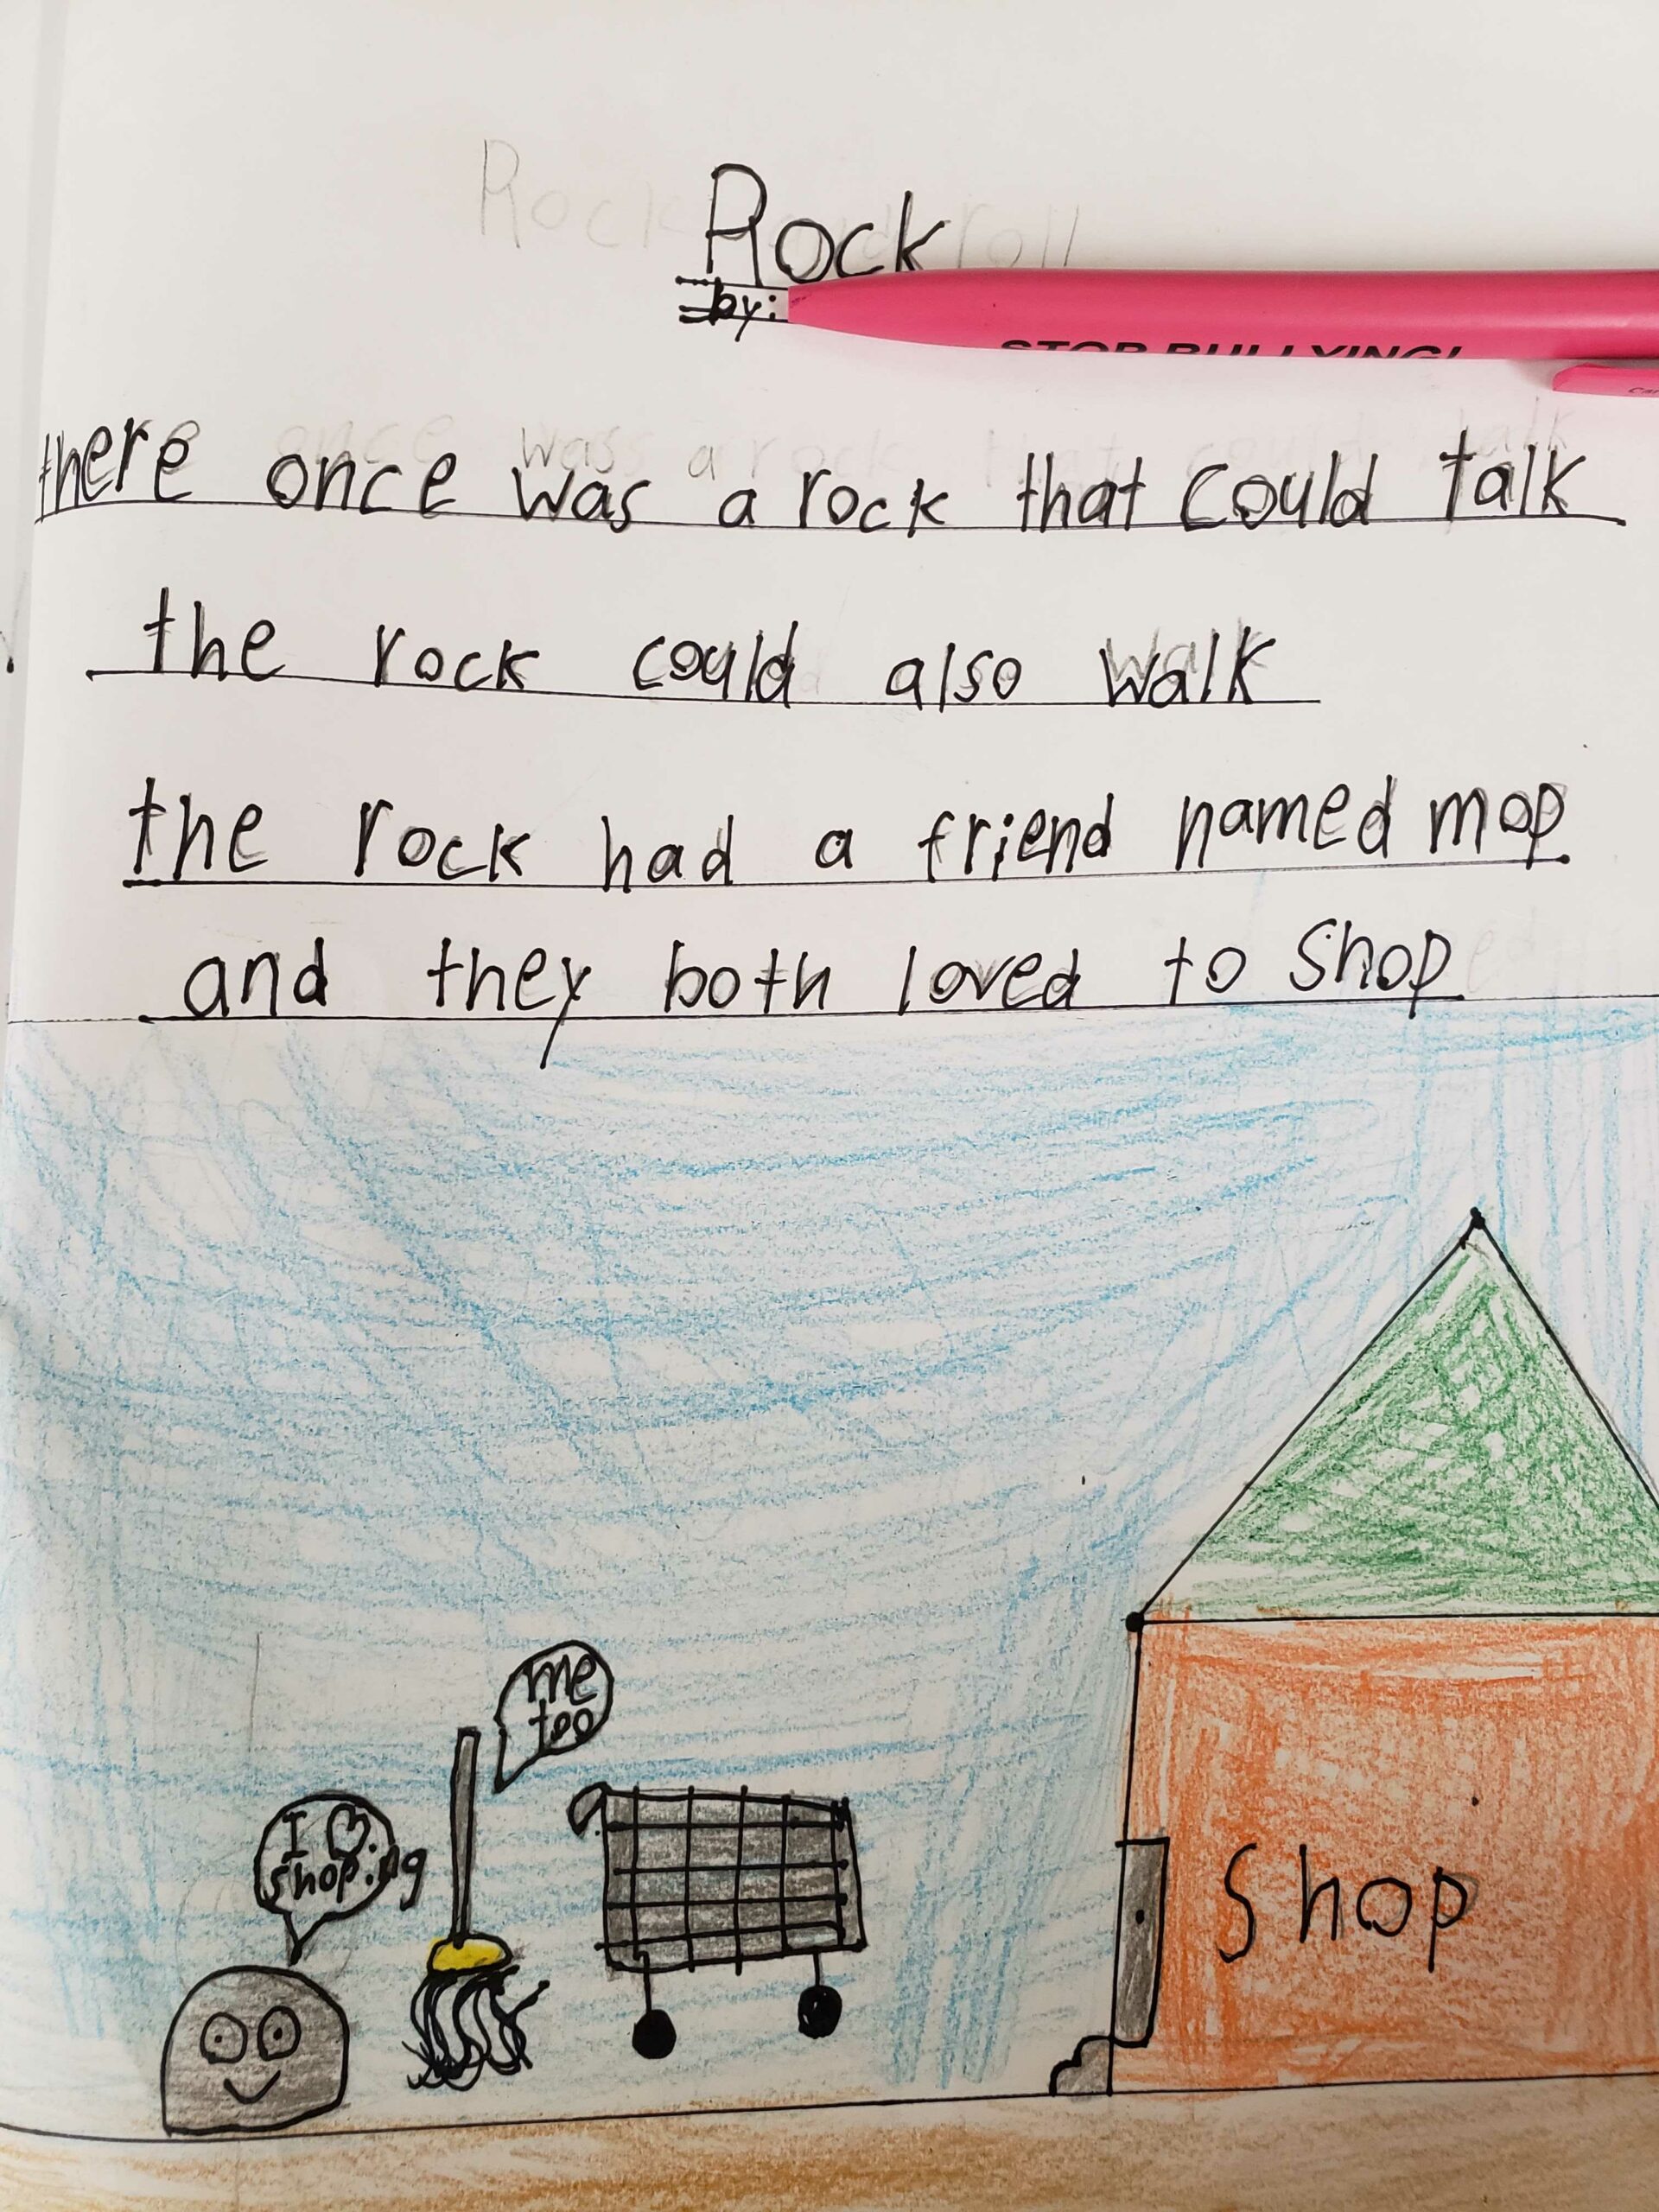 Rock
by:
STOP BULLYING!
there once was a rock that could talk
the rock could also walk
the rock had a friend named mop
and they both loved to shop
me
too
I ♡
shoping
Shop